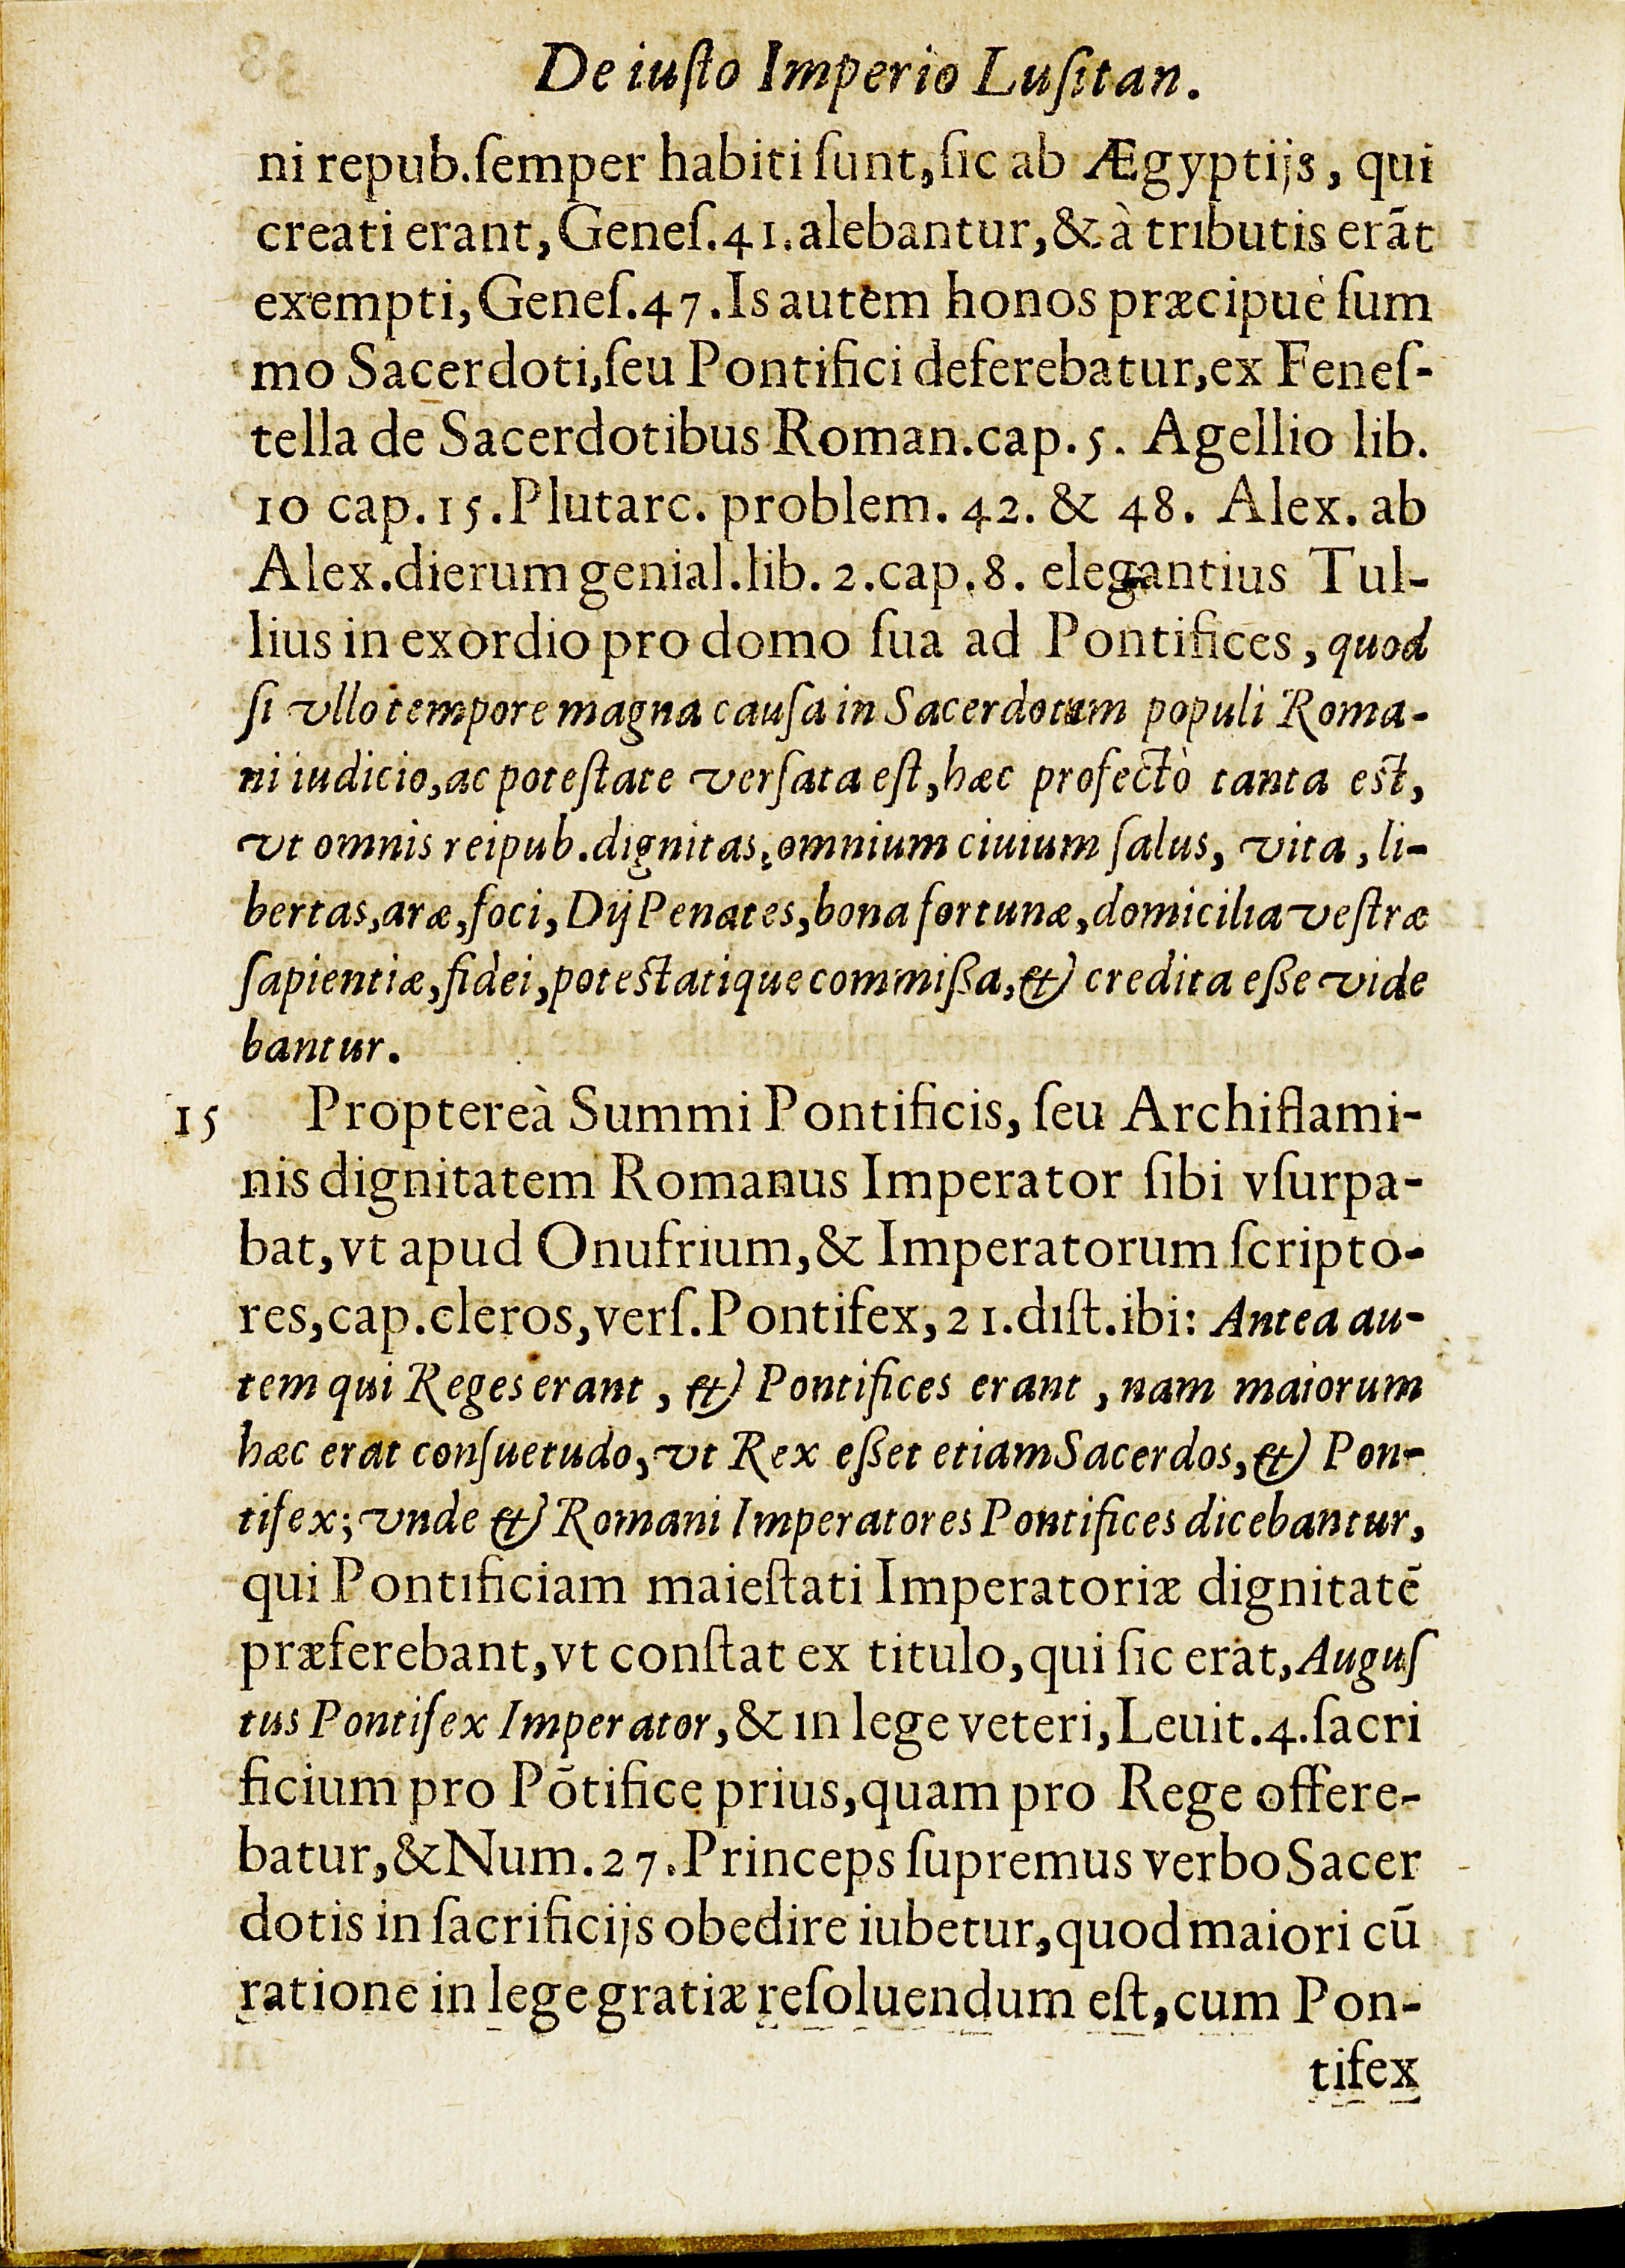 De iuſto Imperio Luſitan.
ni repub.ſemper habiti ſunt,ſic ab Ægyptijs, qui
creati erant, Geneſ.41.alebantur,& à tributis erãt
exempti, Geneſ.47.Is autem honos præcipuè ſum
mo Sacerdoti,ſeu Pontifici deferebatur,ex Feneſ-
tella de Sacerdotibus Roman.cap.5. Agellio lib.
10 cap.15.Plutarc. problem. 42. & 48. Alex. ab
Alex.dierum genial.lib. 2.cap.8. elegantius Tul-
lius in exordio pro domo ſua ad Pontifices, quod
ſi vllo tempore magna cauſa in Sacerdotum populi Roma-
ni iudicio,ac poteſtate verſata eſt,hæc profectò tanta eſt,
vt omnis reipub.dignitas,omnium ciuium ſalus, vita, li-
bertas,aræ,foci, Dij Penates,bona fortunæ,domicilia veſtræ
ſapientiæ,fidei,poteſtatique commiſſa,& credita eſſe vide
bantur.
15 Propterea�Summi Pontificis, ſeu Archiflami-
nis dignitatem Romanus Imperator ſibi vſurpa-
bat,vt apud Onufrium,& Imperatorum ſcripto-
res,cap.cleros,verſ.Pontifex,21.diſt.ibi: Antea au-
tem qui Reges erant, & Pontifices erant, nam maiorum
hæc erat conſuetudo,vt Rex eſſet etiam Sacerdos,& Pon-
tifex; vnde & Romani Imperatores Pontifices dicebantur,
qui Pontificiam maieſtati Imperatoriæ dignitatẽ
præferebant,vt conſtat ex titulo,qui ſic erat,Auguſ
tus Pontifex Imperator,& in lege veteri,Leuit.4.ſacri
ficium pro Põtifice prius,quam pro Rege offere-
batur,& Num.27.Princeps ſupremus verbo Sacer
dotis in ſacrificijs obedire iubetur,quod maiori cũ
ratione in lege gratiæ reſoluendum eſt,cum Pon-
tifex